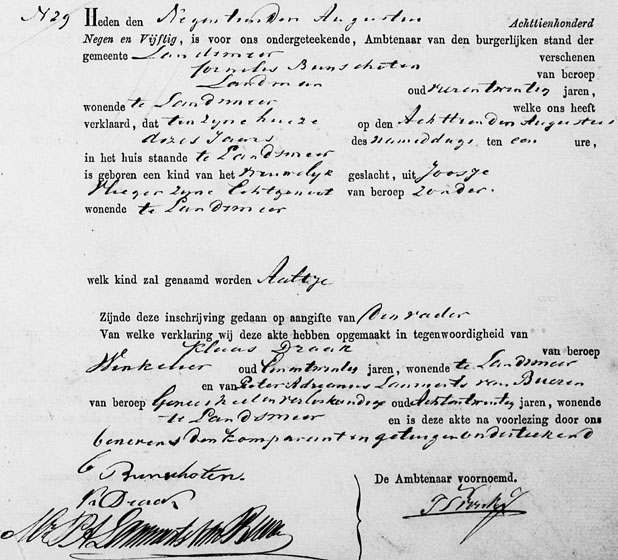 N 29 Heden den Negentienden Augustus Achttienhonderd
Negen en Vijftig, is voor ons ondergeteekende, Ambtenaar van den burgerlijken stand der
gemeente Landsmeer verschenen
Cornelis Bunschoten van beroep
Landman oud jaren,
wonende te Landsmeer welke ons heeft
verklaard, dat ten zijne huize op den Achttienden Augustus
dezes Jaars des namiddags ten een ure,
in het huis staande te Landsmeer
is geboren een kind van het Vrouwelyk geslacht, uit Joosje
Vlieger zyne Echtgenoot van beroep zonder
wonende te Landsmeer
welk kind zal genaamd worden Aaltje
Zijnde deze inschrijving gedaan op aangifte van den vader
Van welke verklaring wij deze akte hebben opgemaakt in tegenwoordigheid van
Klaas Draak van beroep
Winkelier oud Eenentwintig jaren, wonende te Landsmeer
en van Pieter Adrianus Lammerts van Bueren
van beroep Genees heel en verloskundige oud Achtentwintig jaren, wonende
te Landsmeer en is deze akte na voorlezing door ons
benevens den komparant en getuigen onderteekend
C Bunschoten.
K Draak De Ambtenaar voornoemd.
P A Lammerts van Bueren